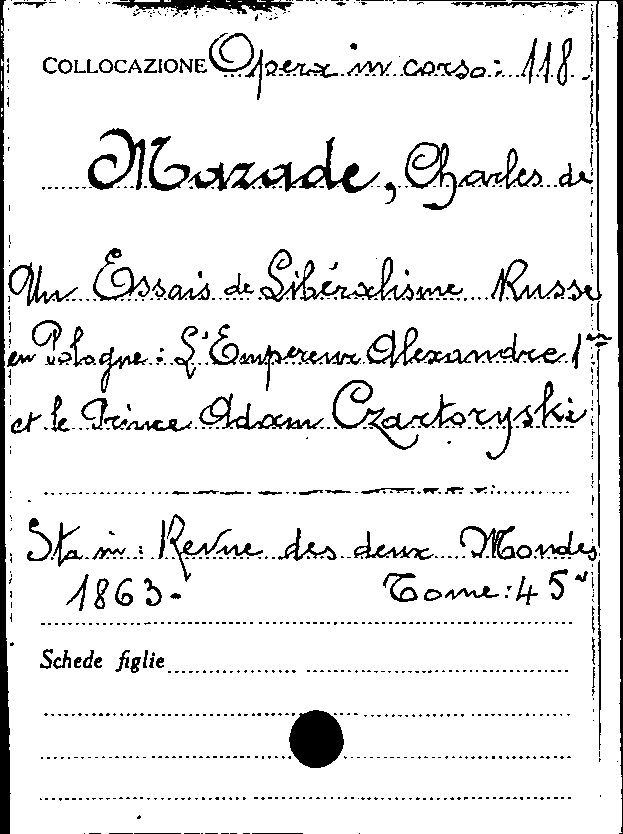 COLLOCAZIONE Opera in corso: 118.
Mazade, Charles de
Un Essais de Libéralisme Russe
en Pologne: L'Empereur Alexandre 1er
et le Prince Adam Czartoryski
Sta in: Revue des deux Mondes
1863- Tome: 45°
Schede figlie